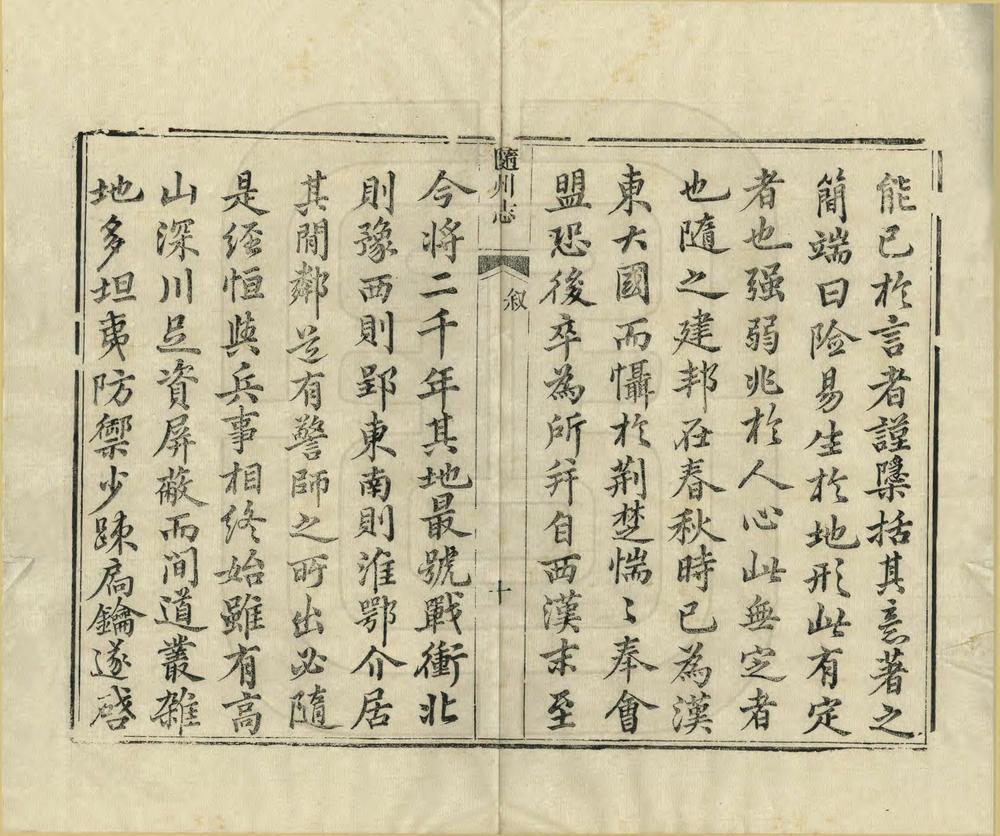 能已於言者謹櫽括其意著之
簡端曰险易生於地形此有定
者也强弱兆於人心此無定者
也隨之建邦在春秋時已為漢
東大國而懾於荆楚惴〻奉會
盟恐後卒為所并自西漢末至
隨州志
叙
十
今将二千年其地最號戰衝北
則豫西則郢東南則淮鄂介居
其間鄰道有警師之所出必隨
是經恒與兵事相终始雖有高
山深川足資屏蔽而间道叢雜
地多坦夷防禦少踈扃鑰遂啓